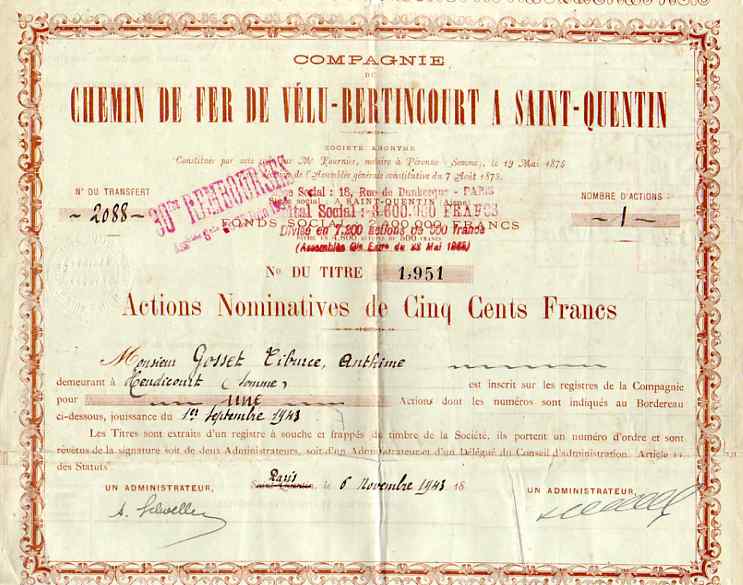 COMPAGNIE
DU
CHEMIN DE FER DE VÉLU-BERTINCOURT A SAINT-QUENTIN
SOCIÉTÉ ANONYME
Constituée par acte Mᵉ Fournier, notaire à Péronne (Somme), le 19 Mai 1875
de l'Assemblée générale constitutive du 7 Août 1875.
Social : 18, Rue de Dunkerque - PARIS
A SAINT-QUENTIN (Aisne)
Capital Social : 3.600.000 FRANCS
FONDS SOCIAL FRANCS
Divisé en 7,200 actions de 500 francs
(Assemblée Gle Extre du 23 Mai
No DU TRANSFERT
2088
30me REMBOURSÉS
NOMBRE D'ACTIONS
1
No DU TITRE 1,951
Actions Nominatives de Cinq Cents Francs
Monsieur Gosset Tiburce, Anthime
demeurant à Heudicourt (Somme) est inscrit sur les registres de la Compagnie
pour une Actions dont les numéros sont indiqués au Bordereau
ci-dessous, jouissance du 1er Septembre 1943
Les Titres sont extraits d'un registre à souche et frappés du timbre de la Société, ils portent un numéro d'ordre et sont
revêtus de la signature soit de deux Administrateurs, soit d'un Administrateur et d'un Délégué du Conseil d'administration. Article 11
des Statuts
UN ADMINISTRATEUR,
Paris
Saint-Quentin, le 6 Novembre 1943 18
UN ADMINISTRATEUR,